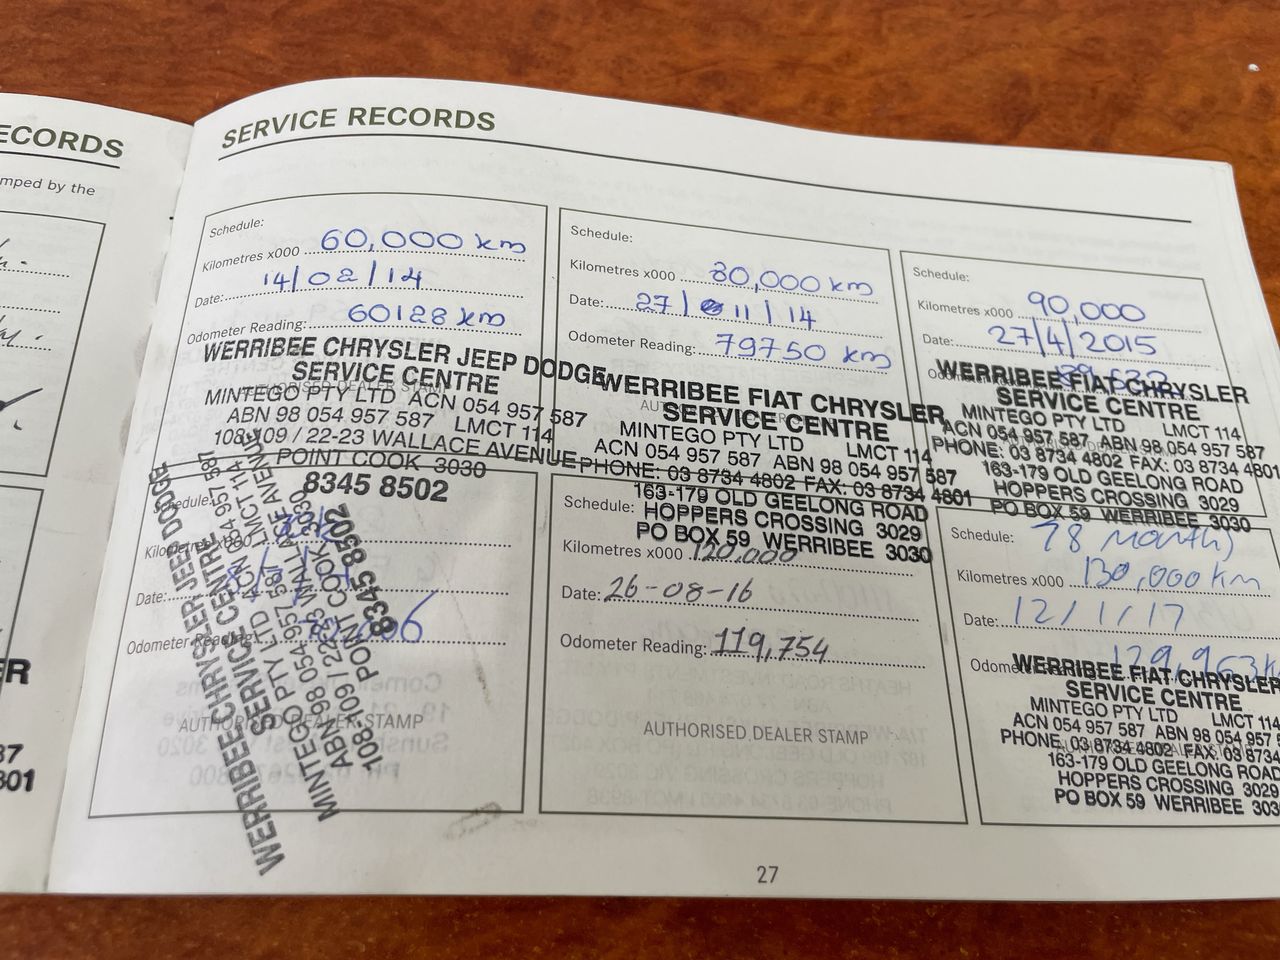 ECORDS
mped by the
SERVICE RECORDS
Schedule:
Kilometres x000 60,000 km
Date: 14/02/14
Odometer Reading: 60128 km
WERRIBEE CHRYSLER JEEP DODGE
SERVICE CENTRE
AUTHORISED DEALER STAMP
MINTEGO PTY LTD ACN 054 957 587
ABN 98 054 957 587 LMCT 114
108-109 / 22-23 WALLACE AVENUE
POINT COOK 3030
8345 8502
Schedule:
Kilometres x000 80,000 km
Date: 27/11/14
Odometer Reading: 79750 km
WERRIBEE FIAT CHRYSLER
SERVICE CENTRE
MINTEGO PTY LTD LMCT 114
ACN 054 957 587 ABN 98 054 957 587
PHONE: 03 8734 4802 FAX: 03 8734 4801
163-179 OLD GEELONG ROAD
HOPPERS CROSSING 3029
PO BOX 59 WERRIBEE 3030
Schedule:
Kilometres x000 90,000
Date: 27/4/2015
WERRIBEE FIAT CHRYSLER
SERVICE CENTRE
MINTEGO PTY LTD LMCT 114
ACN 054 957 587 ABN 98 054 957 587
PHONE: 03 8734 4802 FAX: 03 8734 4801
163-179 OLD GEELONG ROAD
HOPPERS CROSSING 3029
PO BOX 59 WERRIBEE 3030
Schedule:
Kilometres x000
Date:
Odometer Reading:
AUTHORISED DEALER STAMP
WERRIBEE CHRYSLER JEEP DODGE
SERVICE CENTRE
MINTEGO PTY LTD ACN 054 957 587
ABN 98 054 957 587 LMCT 114
108-109 / 22-23 WALLACE AVENUE
POINT COOK 3030
8345 8502
Schedule:
Kilometres x000 120,000
Date: 26-08-16
Odometer Reading: 119,754
AUTHORISED DEALER STAMP
Schedule: 78 Months
Kilometres x000 130,000 km
Date: 12/1/17
129,963
WERRIBEE FIAT CHRYSLER
SERVICE CENTRE
MINTEGO PTY LTD LMCT 114
ACN 054 957 587 ABN 98 054 957 5
PHONE: 03 8734 4802 FAX: 03 8734
163-179 OLD GEELONG ROAD
HOPPERS CROSSING 3029
PO BOX 59 WERRIBEE 303
ER
87
801
27